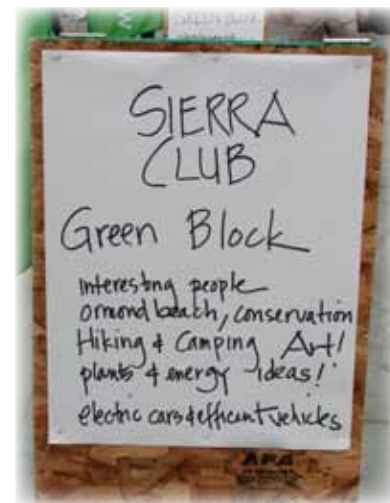 SIERRA
CLUB
Green Block
interesting people
ormond beach, conservation
Hiking & Camping Art!
plants & energy ideas!
electric cars & efficient vehicles
APA